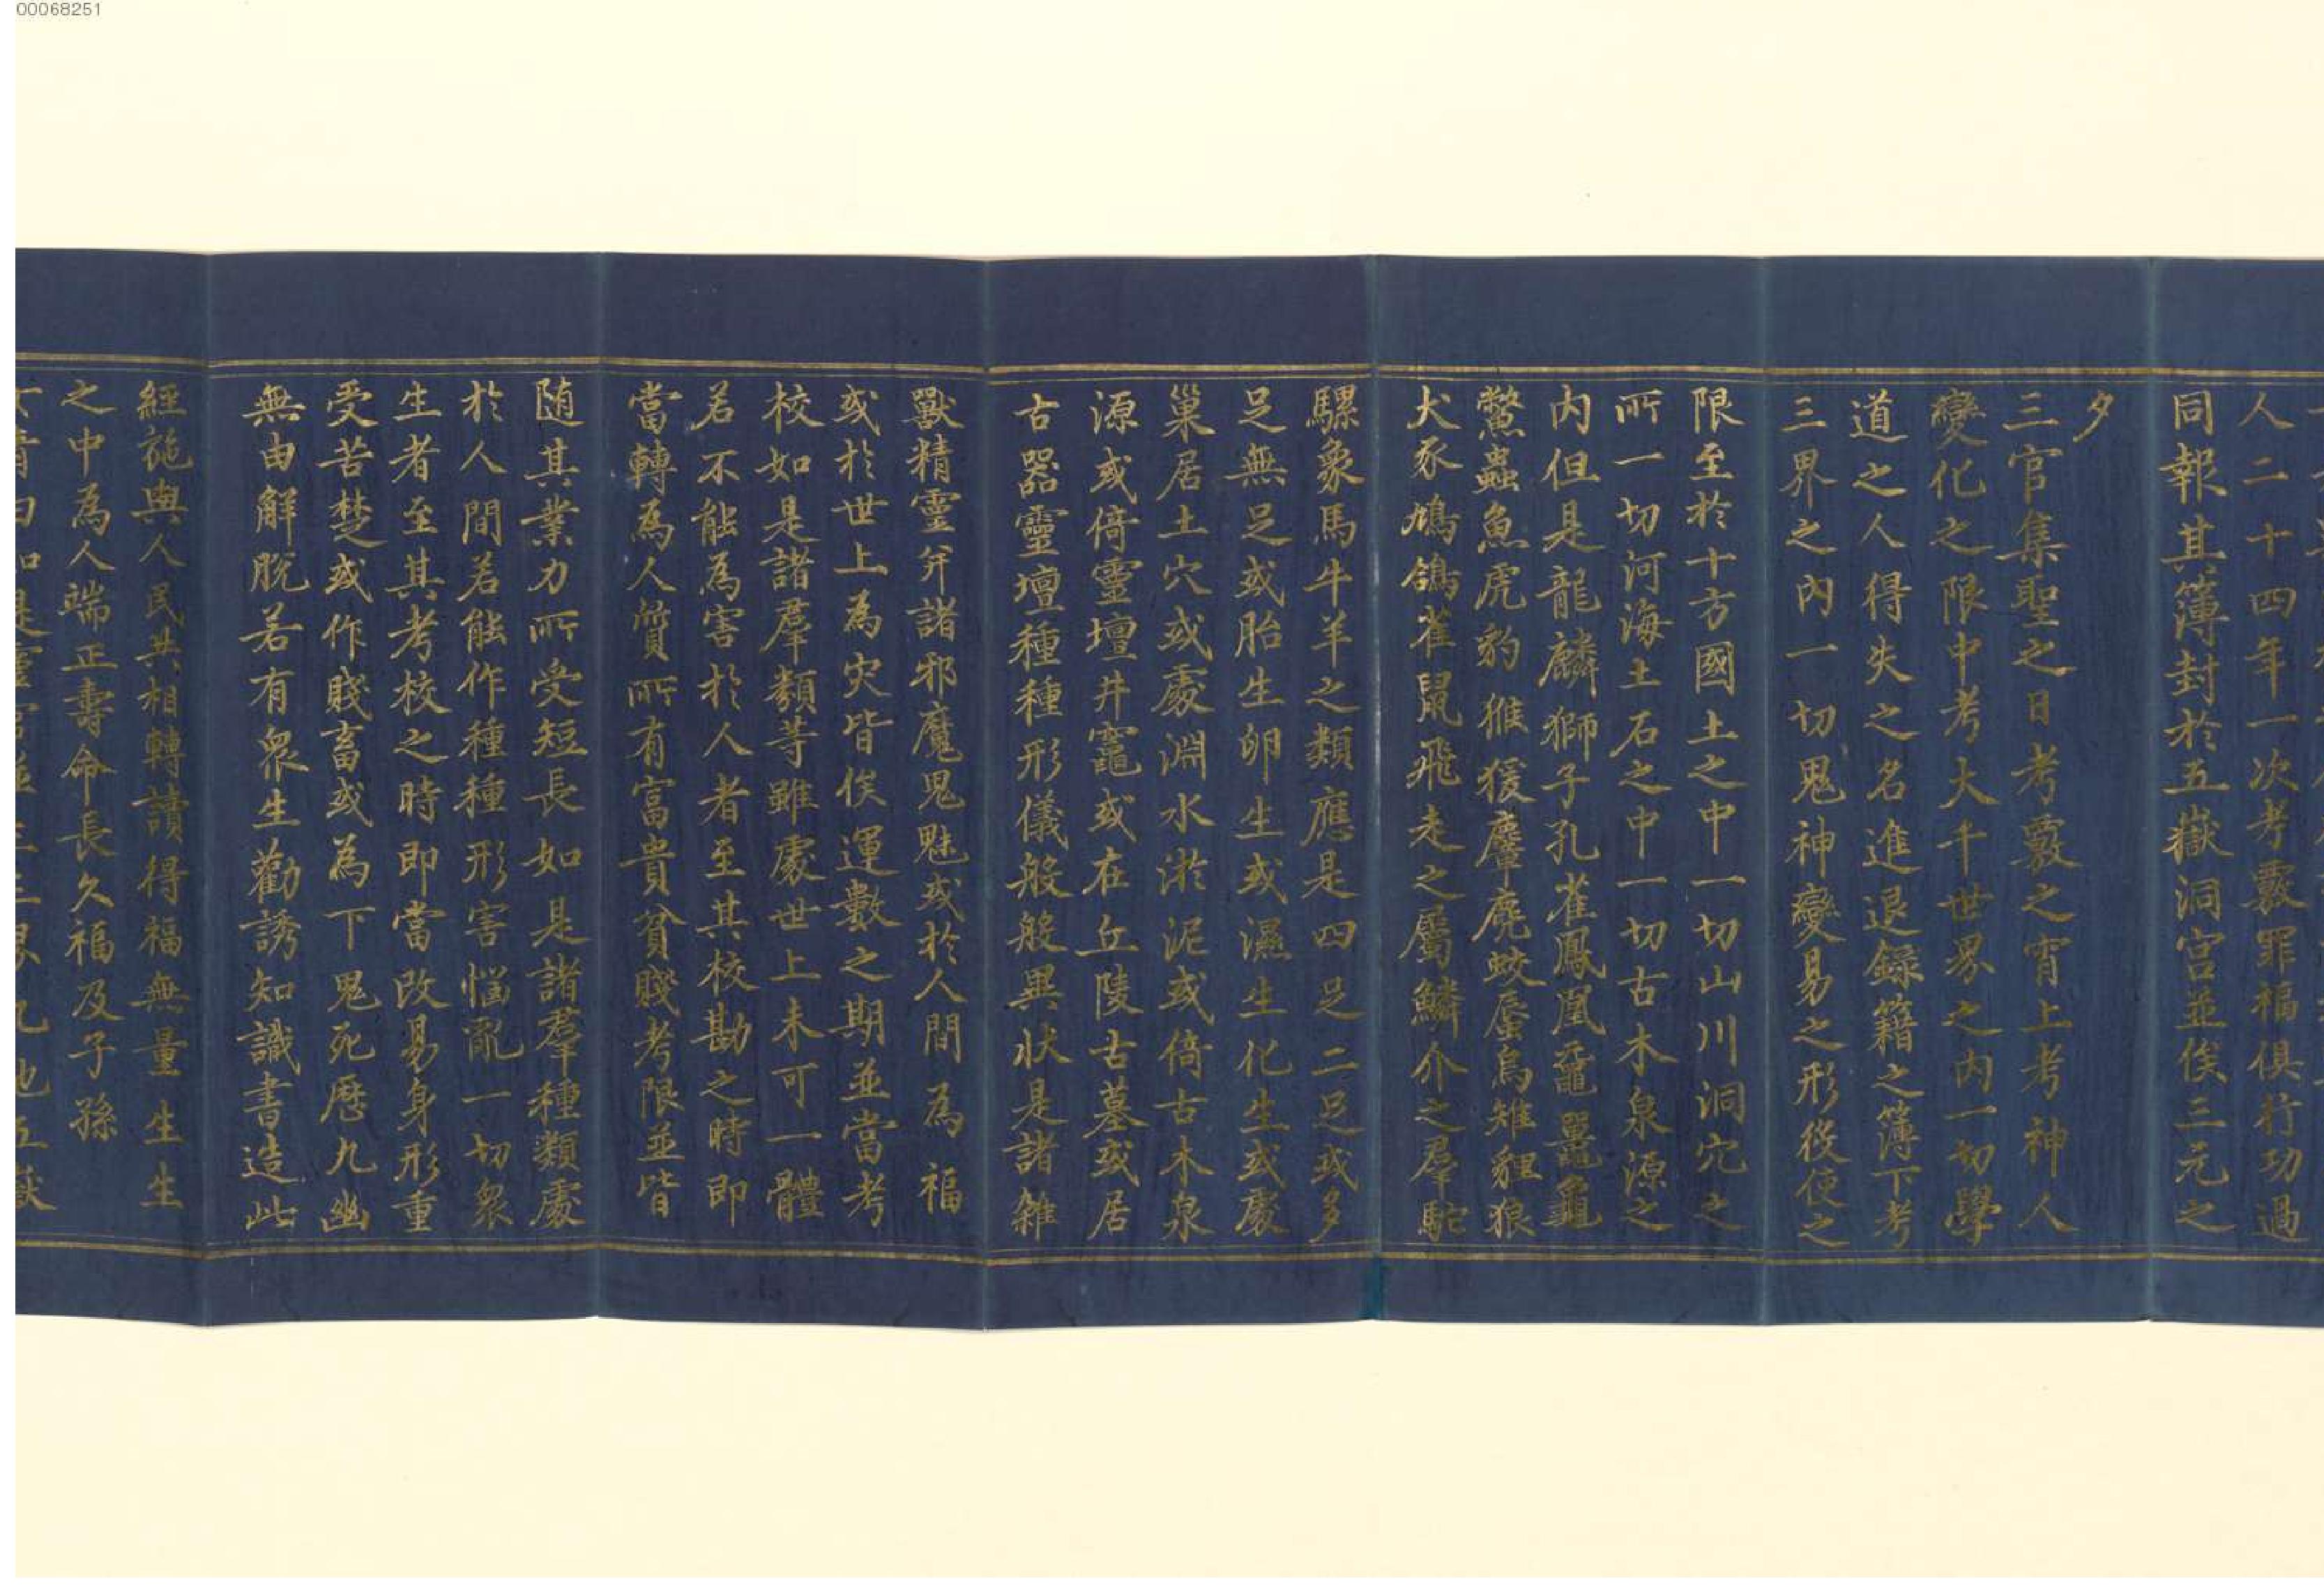 00068251
人二十四年一次考覈罪福俱行功過
同報其簿封於五嶽洞宫並俟三元之
夕
三官集聖之日考覈之宵上考神人
變化之限中考大千世界之内一切學
道之人得失之名進退錄籍之簿下考
三界之内一切鬼神變易之形役使之
限至於十方國土之中一切山川洞穴之
所一切河海土石之中一切古木泉源之
内但是龍麟獅子孔雀鳳凰黿鼉龜
鱉蟲魚虎豹猴猨麞鹿蛟蜃烏雉狸狼
犬豕鳩鴿雀鼠飛走之屬鱗介之羣駝
騾象馬牛羊之類應是四足二足或多
足無足或胎生卵生或濕生化生或處
巢居土穴或處淵水淤泥或倚古木泉
源或倚靈壇井竈或在丘陵古墓或居
古器靈壇種種形儀般般異狀是諸雜
獸精靈并諸邪魔鬼魅或於人間為福
或於世上為灾皆俟運數之期並當考
校如是諸羣類等雖處世上未可一體
若不能為害於人者至其校勘之時即
當轉為人質所有富貴貧賤考限並皆
随其業力所受短長如是諸羣種類處
於人間若能作種種形害惱亂一切衆
生者至其考校之時即當改易身形重
受苦楚或作賤畜或為下鬼死歷九幽
無由解脱若有衆生勸誘知識書造此
經施與人民共相轉讀得福無量生生
之中為人端正壽命長久福及子孫